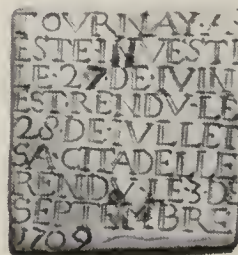 TOVRNAY · A
ESTE INVESTI
LE · 27 DE · IVIN
EST · RENDV · LE
28 · DE · IVILLET
SA CITADELLE
RENDV · LE 3 · DE
SEPTEMBRE
1709